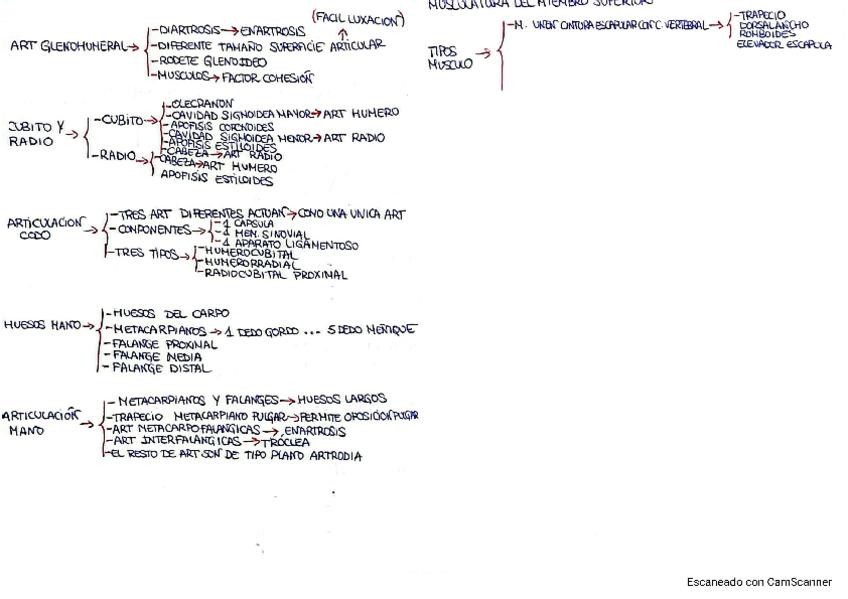 (FACIL LUXACION)
ART GLENOHUMERAL → -DIARTROSIS → ENARTROSIS
-DIFERENTE TAMAÑO SUPERFICIE ARTICULAR
-RODETE GLENOIDEO
-MUSCULOS → FACTOR COHESIÓN
CUBITO Y RADIO → -CUBITO → -OLECRANON
-CAVIDAD SIGMOIDEA MAYOR → ART HUMERO
-APOFISIS CORONOIDES
-CAVIDAD SIGMOIDEA MENOR → ART RADIO
-APOFISIS ESTILOIDES
-CABEZA → ART RADIO
-RADIO → -CABEZA → ART HUMERO
APOFISIS ESTILOIDES
ARTICULACION CODO → -TRES ART DIFERENTES ACTUAN → COMO UNA UNICA ART
-COMPONENTES → -1 CAPSULA
-1 MEM. SINOVIAL
-1 APARATO LIGAMENTOSO
-TRES TIPOS → -HUMEROCUBITAL
-HUMERORRADIAL
-RADIOCUBITAL PROXIMAL
HUESOS MANO → -HUESOS DEL CARPO
-METACARPIANOS → 1 DEDO GORDO ... 5 DEDO MEÑIQUE
-FALANGE PROXIMAL
-FALANGE MEDIA
-FALANGE DISTAL
ARTICULACIÓN MANO → - METACARPIANOS Y FALANGES → HUESOS LARGOS
-TRAPECIO METACARPIANO PULGAR → PERMITE OPOSICION PULGAR
-ART METACARPOFALANGICAS → ENARTROSIS
-ART INTERFALANGICAS → TRÓCLEA
-EL RESTO DE ART SON DE TIPO PLANO ARTRODIA
MUSCULATURA DEL MIEMBRO SUPERIOR
TIPOS MUSCULO → -M. UNEN CINTURA ESCAPULAR CON C. VERTEBRAL → -TRAPECIO
DORSAL ANCHO
ROMBOIDES
ELEVADOR ESCAPULA
Escaneado con CamScanner